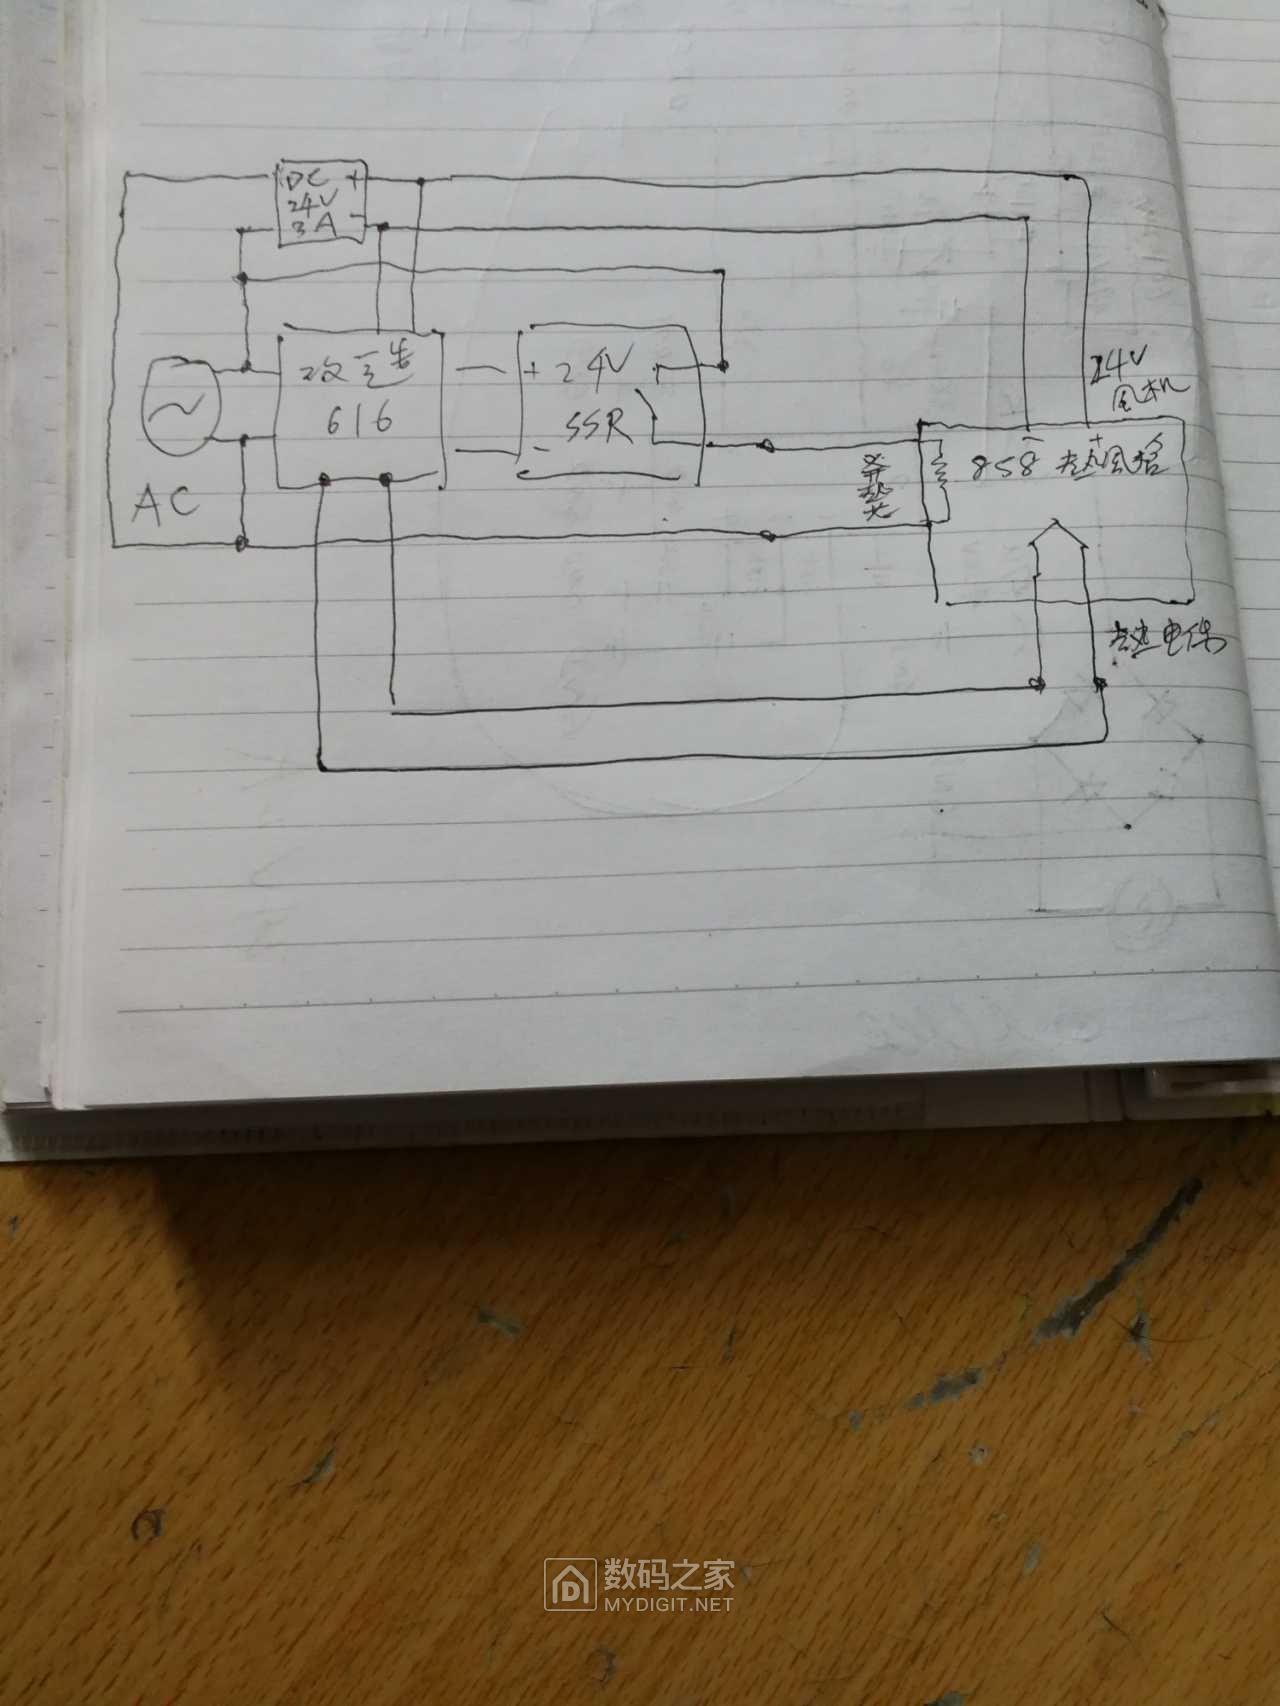 DC +
24V -
3A
AC
改宇电
616
+ 24V
- SSR
24V
风机
- +
858 热风枪
发热芯
热电偶
数码之家
MYDIGIT.NET